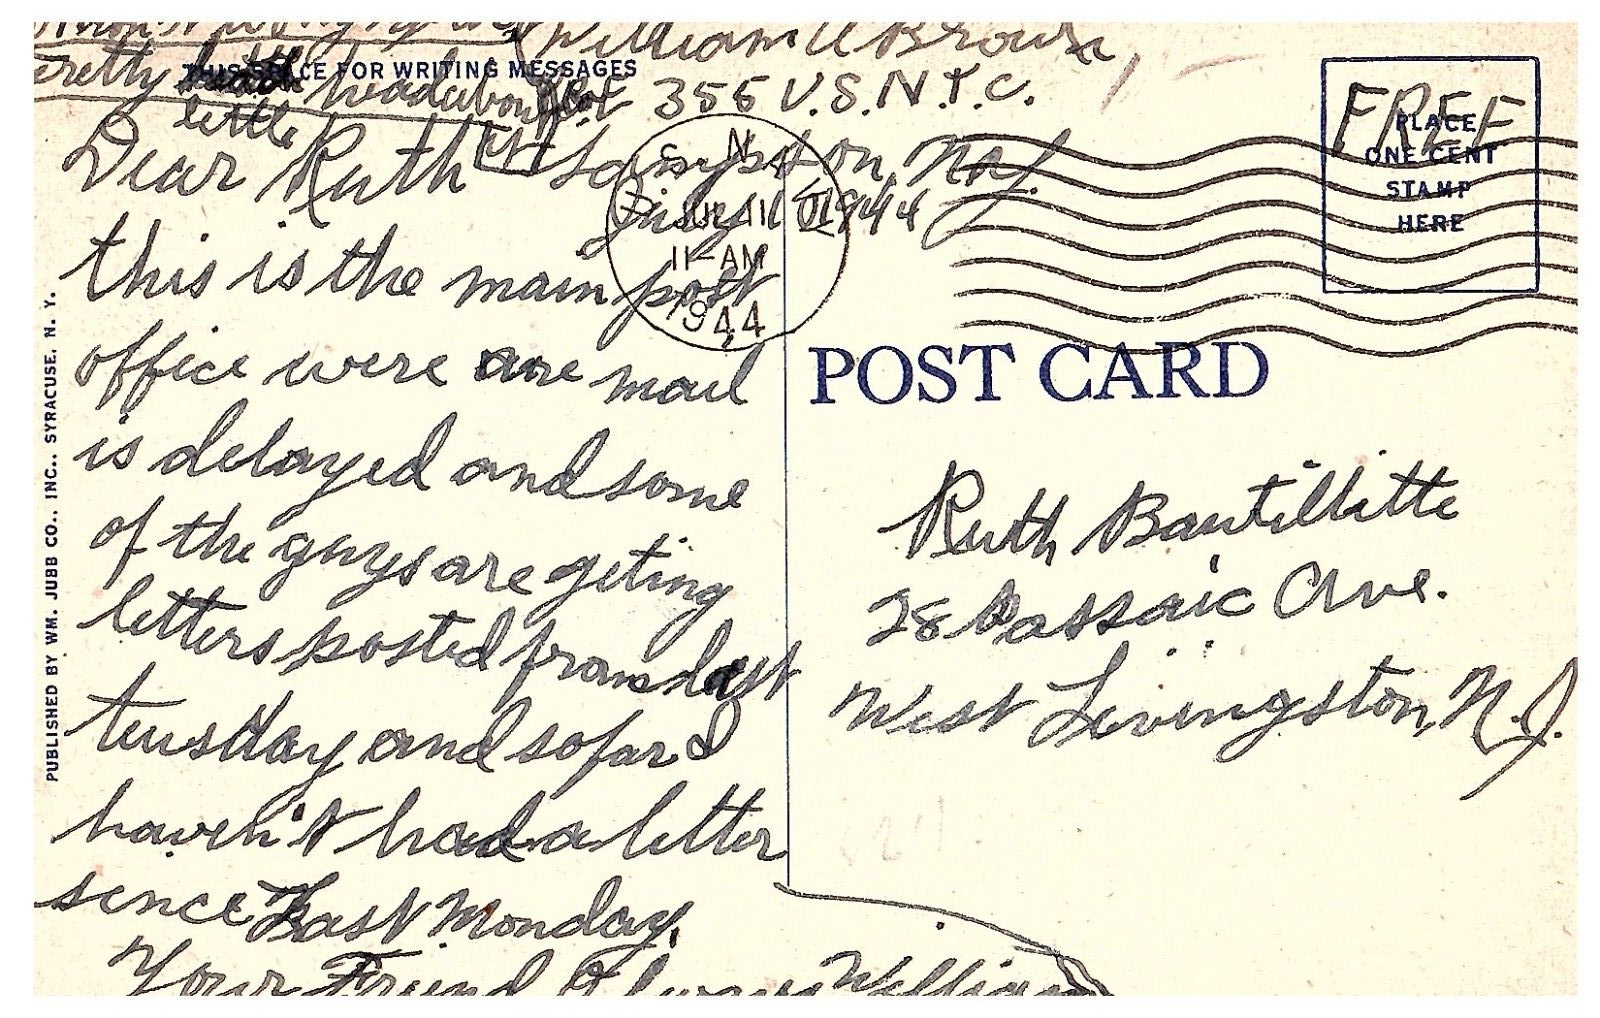 William A Brown,
pretty little headubout
THIS SPACE FOR WRITING MESSAGES
356 U.S.N.T.C.
Sampson, N.Y.
July 11, 1944
Dear Ruth
this is the main post
office were are mail
is delayed and some
of the guys are geting
letters posted from last
teusday and so far I
haven't had a letter
since Last Monday.
Your Friend Always William
N.Y.
JUL 11
11-AM
1944
FREE
PLACE
ONE CENT
STAMP
HERE
POST CARD
Ruth Bantillitte
28 Passaic Ave.
West Livingston, N.J.
PUBLISHED BY WM. JUBB CO., INC., SYRACUSE, N. Y.